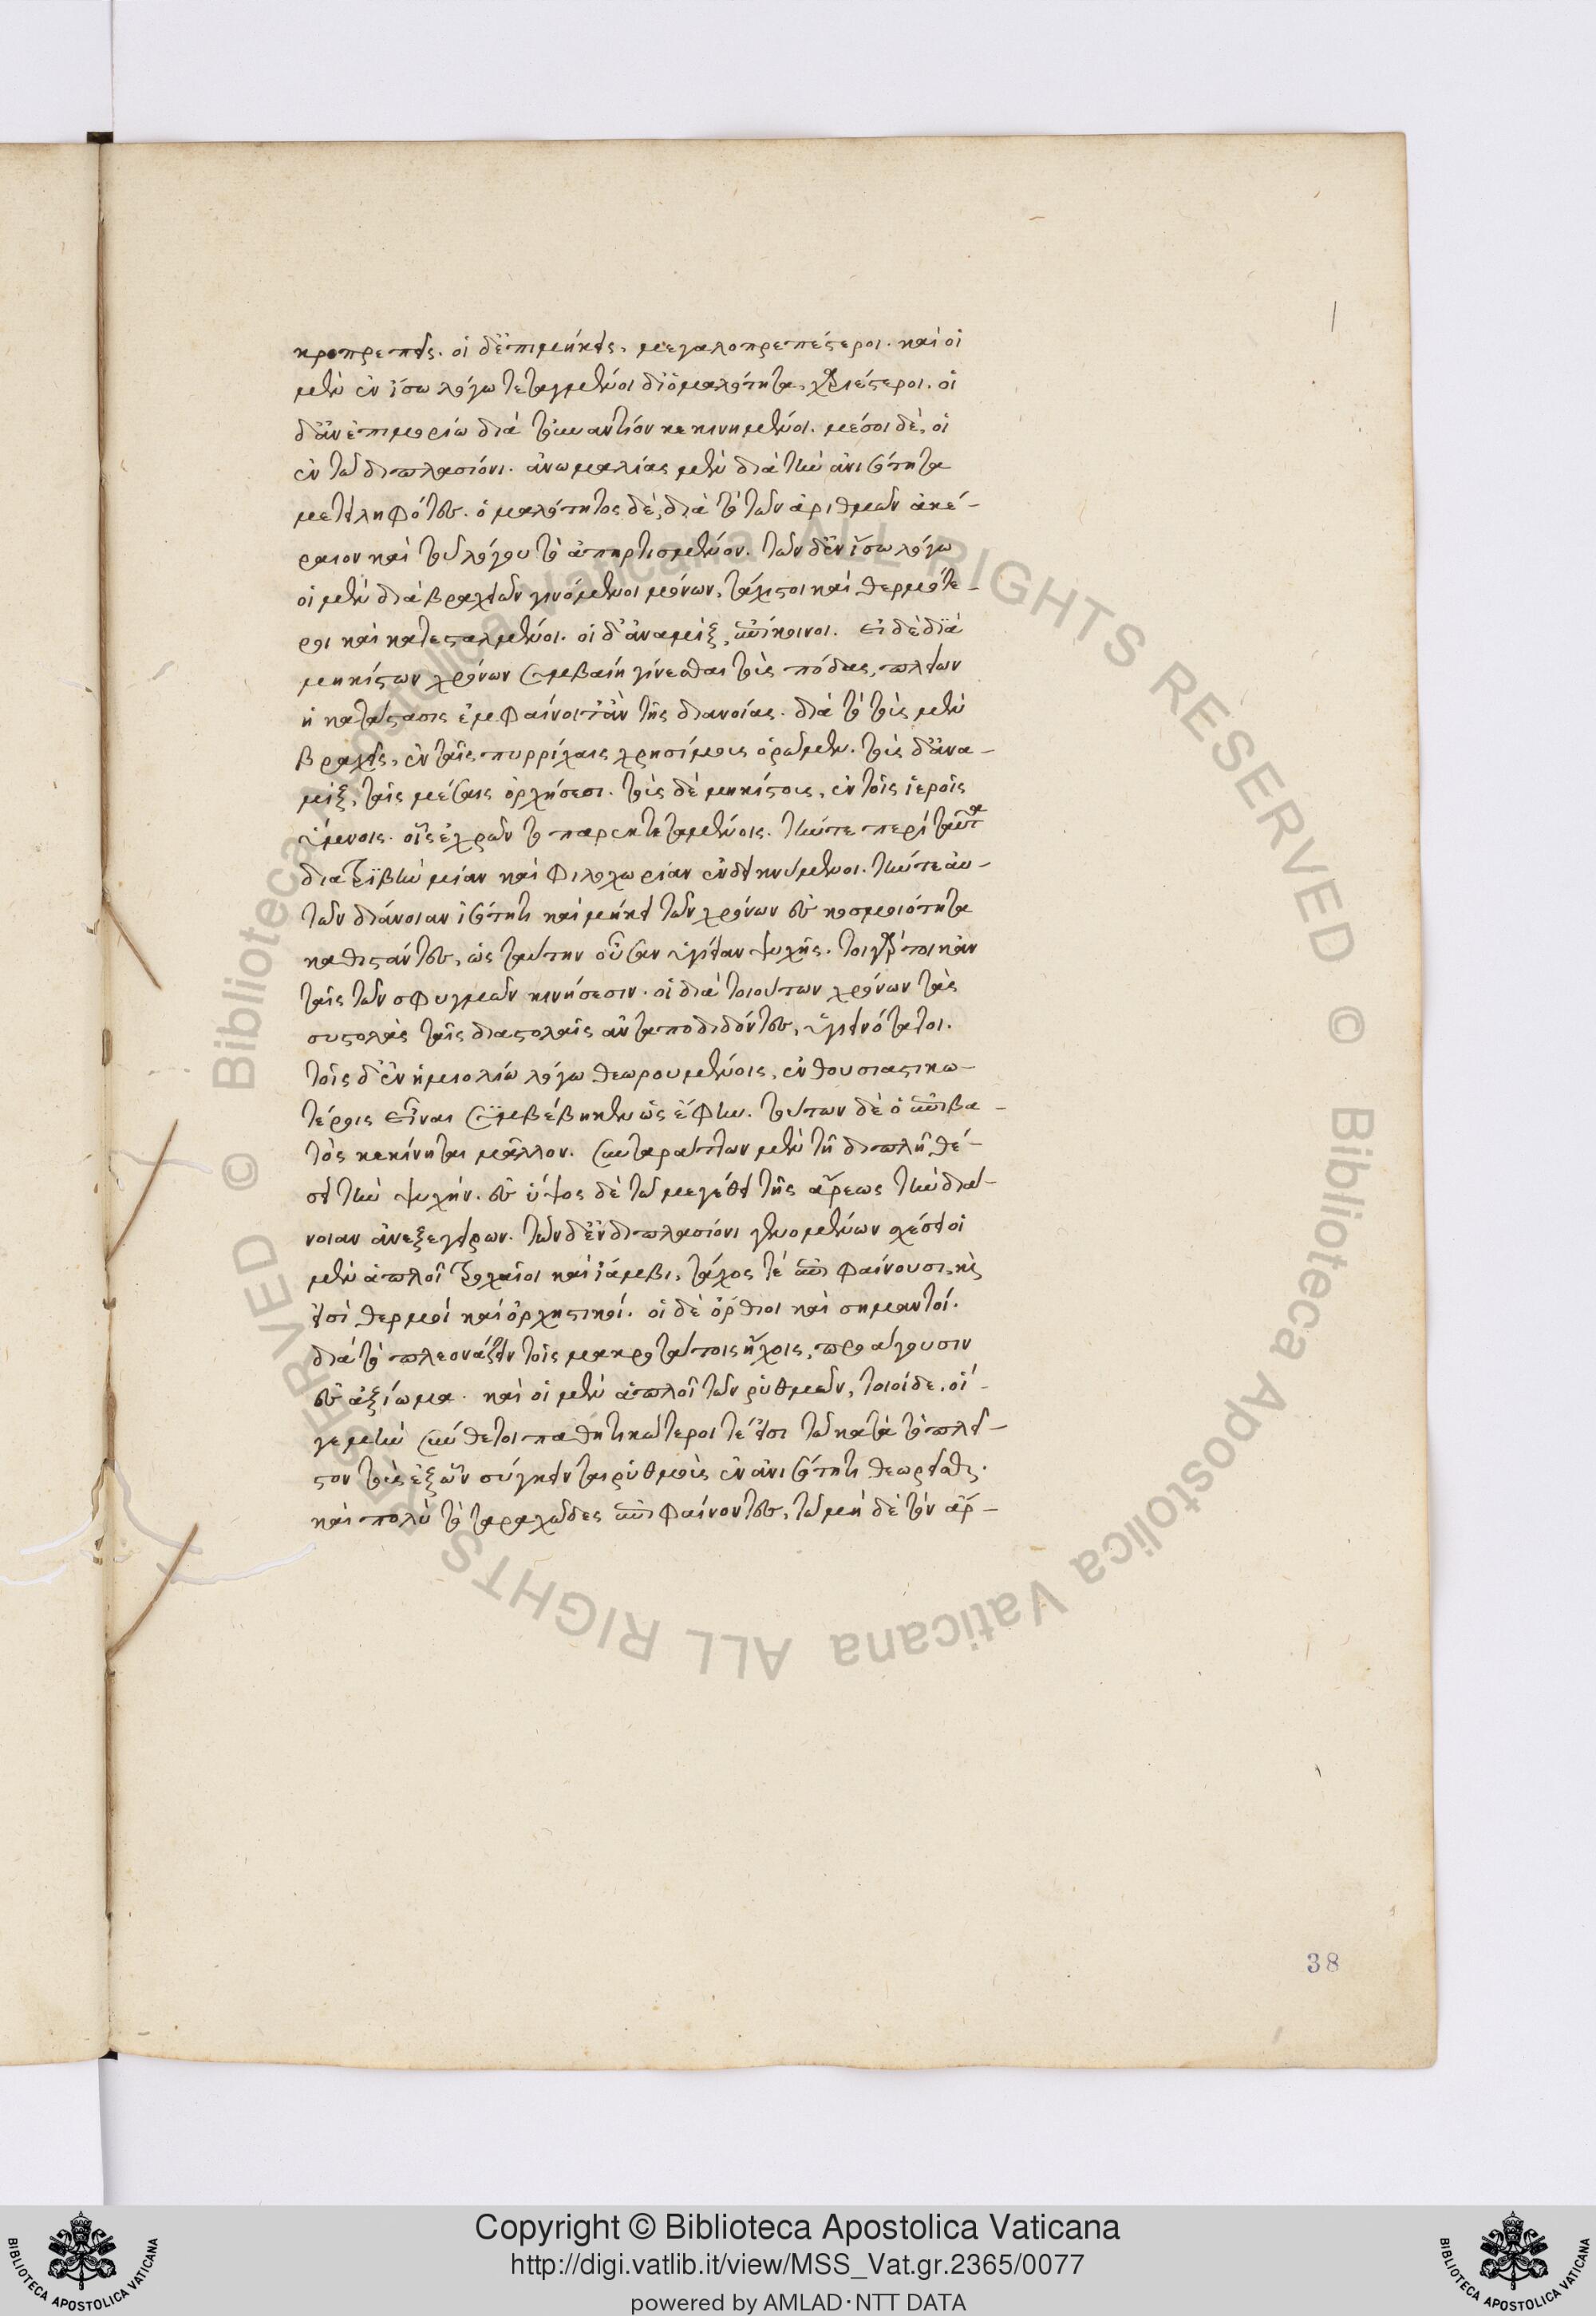 κροπρεπεῖς. οἱ δ' ἐπιμήκεις, μεγαλοπρεπέστεροι. καὶ οἱ
μὲν ἐν ἴσω λόγω τεταγμένοι δι' ὁμαλότητα, χαριέστεροι. οἱ
δ' ἂν ἐπιμορίω διὰ τοὐναντίον κεκινημένοι. μέσοι δὲ, οἱ
ἐν τῶ διπλασίονι. ἀνωμαλίας μὲν διὰ τὴν ἀνισότητα
μετειληφότες. ὁμαλότητος δὲ, διὰ τὸ τῶν ἀριθμῶν ἀκέ-
ραιον καὶ τοῦ λόγου τὸ ἀπηρτισμένον. τῶν δ' ἐν ἴσω λόγω
οἱ μὲν διὰ βραχειῶν γινόμενοι μόνων, τάχιστοι καὶ θερμότε-
ροι καὶ κατεσταλμένοι. οἱ δ' ἀναμὶξ, ἐπίκοινοι. εἰ δὲ διὰ
μηκίστων χρόνων συμβαίη γίνεσθαι τοὺς πόδας, πλείων
ἡ κατάστασις ἐμφαίνοιτ' ἂν τῆς διανοίας. διὰ τὸ τοὺς μὲν
βραχεῖς, ἐν ταῖς πυρρίχαις χρησίμους ὁρῶμεν. τοὺς δ' ἀνα-
μὶξ, ταῖς μέσαις ὀρχήσεσι. τοὺς δὲ μηκίστους, ἐν τοῖς ἱεροῖς
ὕμνοις. οἷς ἐχρῶντο παρεκτεταμένοις. τήν τε περὶ ταῦτα
διατριβὴν μίαν καὶ φιλοχωρίαν ἐνδεικνύμενοι. τήν τε αὐ-
τῶν διάνοιαν ἰσότητι καὶ μήκει τῶν χρόνων ἐς κοσμιότητα
καθιστάντες, ὡς ταύτην οὖσαν ὑγίειαν ψυχῆς. τοιγάρτοι κἀν
ταῖς τῶν σφυγμῶν κινήσεσιν. οἱ διὰ τοιούτων χρόνων τὰς
συστολὰς ταῖς διαστολαῖς ἀνταποδιδόντες, ὑγιεινότατοι.
τοῖς δ' ἐν ἡμιολίω λόγω θεωρουμένοις, ἐνθουσιαστικω-
τέροις εἶναι συμβέβηκεν ὡς ἔφην. τούτων δὲ ὁ ἐπιβα-
τὸς κεκίνηται μᾶλλον. συνταράττων μὲν τῆ διπλῆ θέ-
σει τὴν ψυχήν. ἐς ὕψος δὲ τῶ μεγέθει τῆς ἄρσεως τὴν διά-
νοιαν ἀνεξεγείρων. τῶν δ' ἐν διπλασίονι γενομένων σχέσει οἱ
μὲν ἁπλοῖ τροχαῖοι καὶ ἴαμβοι, τάχος τέ ἐπιφαίνουσι, καὶ
εἰσὶ θερμοὶ καὶ ὀρχηστικοί. οἱ δὲ ὄρθιοι καὶ σημαντοί.
διὰ τὸ πλεονάζειν τοῖς μακροτάτοις ἤχοις, προάγουσιν
ἐς ἀξίωμα. καὶ οἱ μὲν ἁπλοῖ τῶν ῥυθμῶν, τοιοίδε. οἵ-
γε μὴν σύνθετοι παθητικώτεροι τέ εἰσι τῶ κατὰ τὸ πλεῖ-
στον τοὺς ἐξ ὧν σύγκεινται ῥυθμοὺς ἐν ἀνισότητι θεωρεῖσθαι.
καὶ πολὺ τὸ ταραχῶδες ἐπιφαίνοντες, τῶ μὴ δὲ τὸν ἀρ-
38
Copyright © Biblioteca Apostolica Vaticana
http://digi.vatlib.it/view/MSS_Vat.gr.2365/0077
powered by AMLAD·NTT DATA